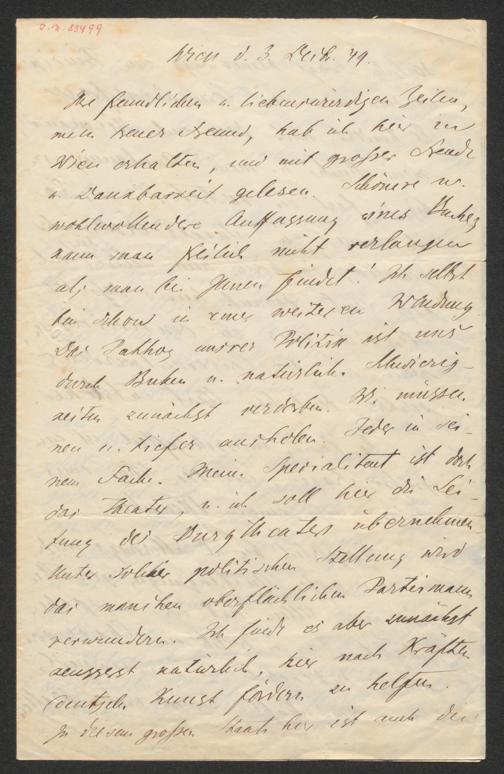 J.N. 83499
Wien d. 3. Dezb. 49.
Ihre freundlichen u. liebenswürdigen Zeilen,
mein teurer Freund, hab ich hier in
Wien erhalten, und mit großer Freude
u. Dankbarkeit gelesen. Schönere u.
wohlwollendere Auffassung eines Buches
kann man freilich nicht verlangen
als man bei Ihnen findet! Ich selbst
bin schon in einer weiteren Wendung
Das Pathos unsrer Politik ist uns
durch Buben u. natürliche Schwierig-
keiten zunächst verdorben. Wir müssen
neu u. tiefer ausholen. Jeder in sei-
nem Fache. Meine Spezialität ist doch
das Theater, u. ich soll hier die Lei-
tung des Burgtheaters übernehmen
Unter solcher politischen Stellung wird
das manchen oberflächlichen Parteimann
verwundern. Ich finde es aber zunächst
äusserst natürlich, hier nach Kräften
deutsche Kunst fördern zu helfen.
In diesem großen Staate hier ist auch die